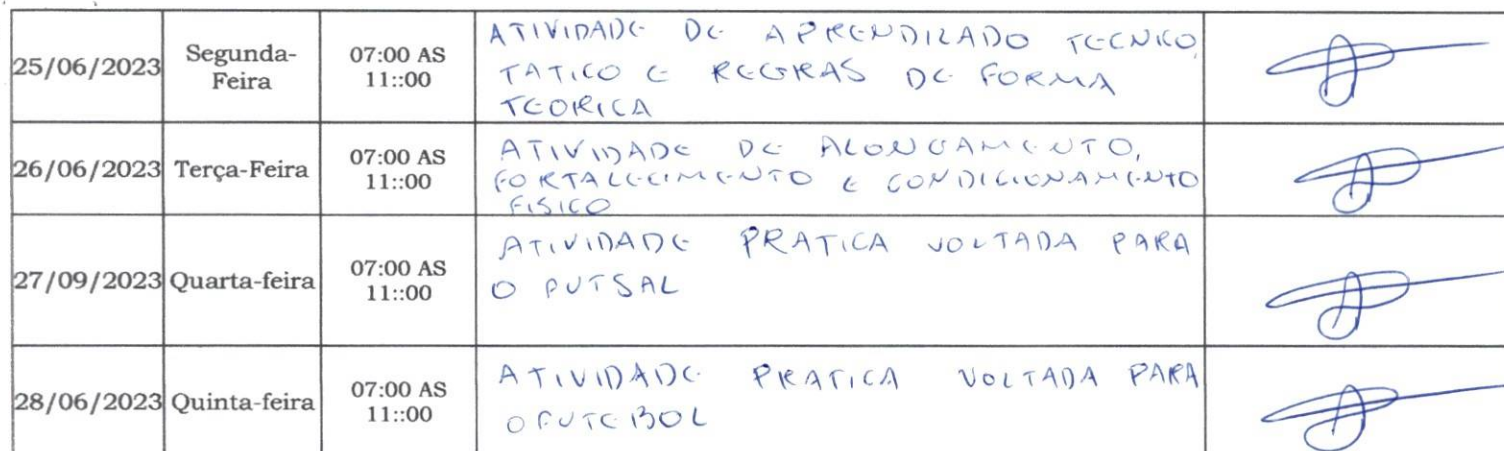 25/06/2023 Segunda-Feira 07:00 AS 11::00 ATIVIDADE DE APRENDIZADO TECNICO,
TATICO E REGRAS DE FORMA
TEORICA
26/06/2023 Terça-Feira 07:00 AS 11::00 ATIVIDADE DE ALONGAMENTO,
FORTALECIMENTO E CONDICIONAMENTO
FISICO
27/09/2023 Quarta-feira 07:00 AS 11::00 ATIVIDADE PRATICA VOLTADA PARA
O FUTSAL
28/06/2023 Quinta-feira 07:00 AS 11::00 ATIVIDADE PRATICA VOLTADA PARA
O FUTEBOL